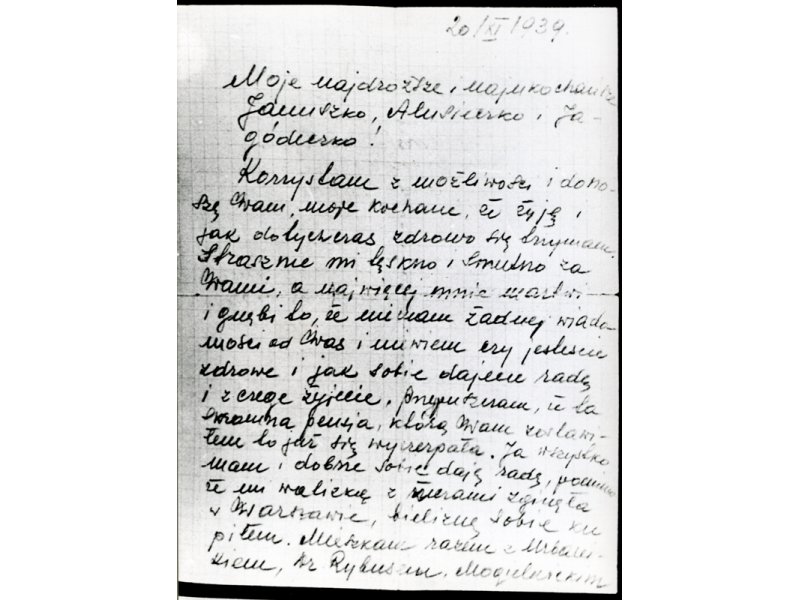 20/XI 1939.
Moje najdroższe i najukochańsze
Januszko, Alusieczko i Ja-
gódeczko!
Korzystam z możliwości i dono-
szę Wam, moje kochane, że żyję i
jak dotychczas zdrowo się trzymam.
Strasznie mi tęskno i smutno za
Wami, a najwięcej mnie martwi
i gnębi to, że nie mam żadnej wiado-
mości od Was i nie wiem czy jesteście
zdrowe i jak sobie dajecie radę
i z czego żyjecie, przypuszczam, że ta
skromna pensja, którą Wam zostawi-
łem to już się wyczerpała. Ja wszystko
mam i dobrze sobie daję radę, pomimo
że mi walizka z rzeczami zginęła
w Warszawie, bieliznę sobie ku
piłem. Mieszkam razem z
dr Rybusem, Mogilnickim